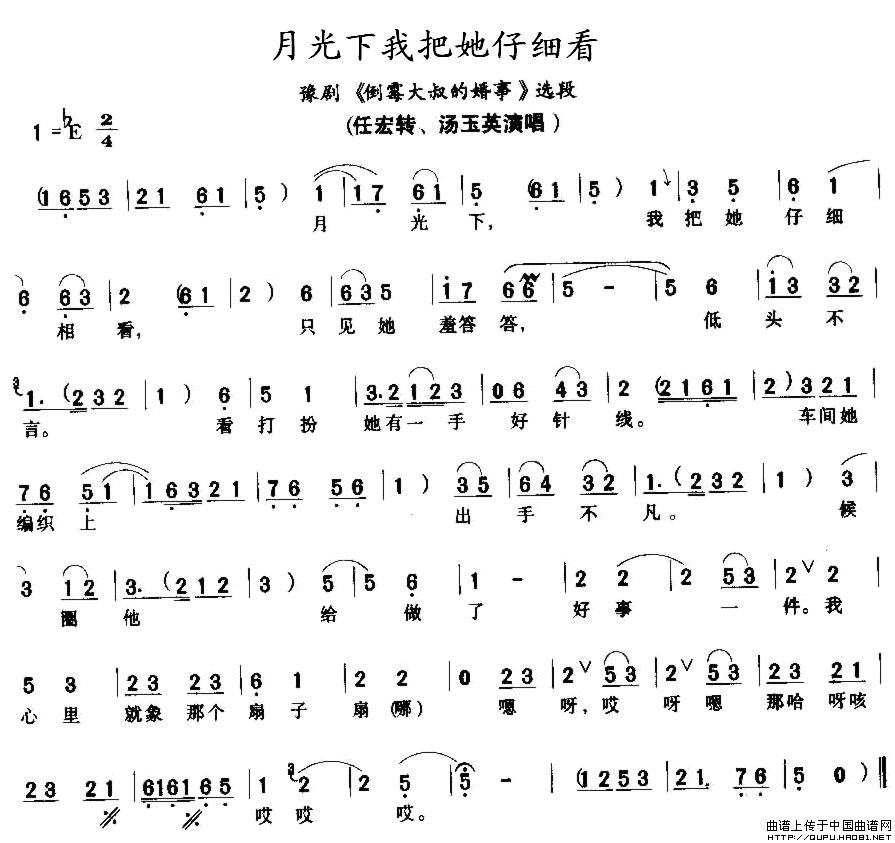 月光下我把她仔细看
豫剧《倒霉大叔的婚事》选段
(任宏转、汤玉英演唱)
1=♭E 2/4
(1653 | 21 61 | 5) 1 | 17 61 | 5 (61 | 5) 1 | 3 5 | 6 1 |
月 光 下, 我 把 她 仔 细
6 63 | 2 (61 | 2) 6 | 635 | i7 66 | 5 - | 5 6 | i3 32 |
相 看, 只 见 她 羞答 答, 低 头 不
3 1. (232 | 1) 6 | 5 1 | 3.2 123 | 06 43 | 2 (2161 | 2) 321 |
言。 看 打 扮 她有一 手 好 针 线。 车间她
76 51 | 16321 | 76 56 | 1) 35 | 64 32 | 1. (232 | 1) 3 |
编织 上 出 手 不 凡。 候
3 12 | 3. (212 | 3) 5 | 5 6 | 1 - | 2 2 | 2 53 | 2 ∨ 2 |
圈 他 给 做 了 好 事 一 件。我
5 3 | 23 23 | 6 1 | 2 2 | 0 23 | 2 ∨ 53 | 2 ∨ 53 | 23 21 |
心 里 就象 那个 扇 子 扇(哪) 嗯 呀, 哎 呀 嗯 那哈 呀咳
23 21 | 6161 65 | 1 3 2 | 2 5 | 5 - | (1253 | 21. 76 | 5 0) ‖
哎 哎 哎。
曲谱上传于中国曲谱网
http://QUPU.HAO81.NET